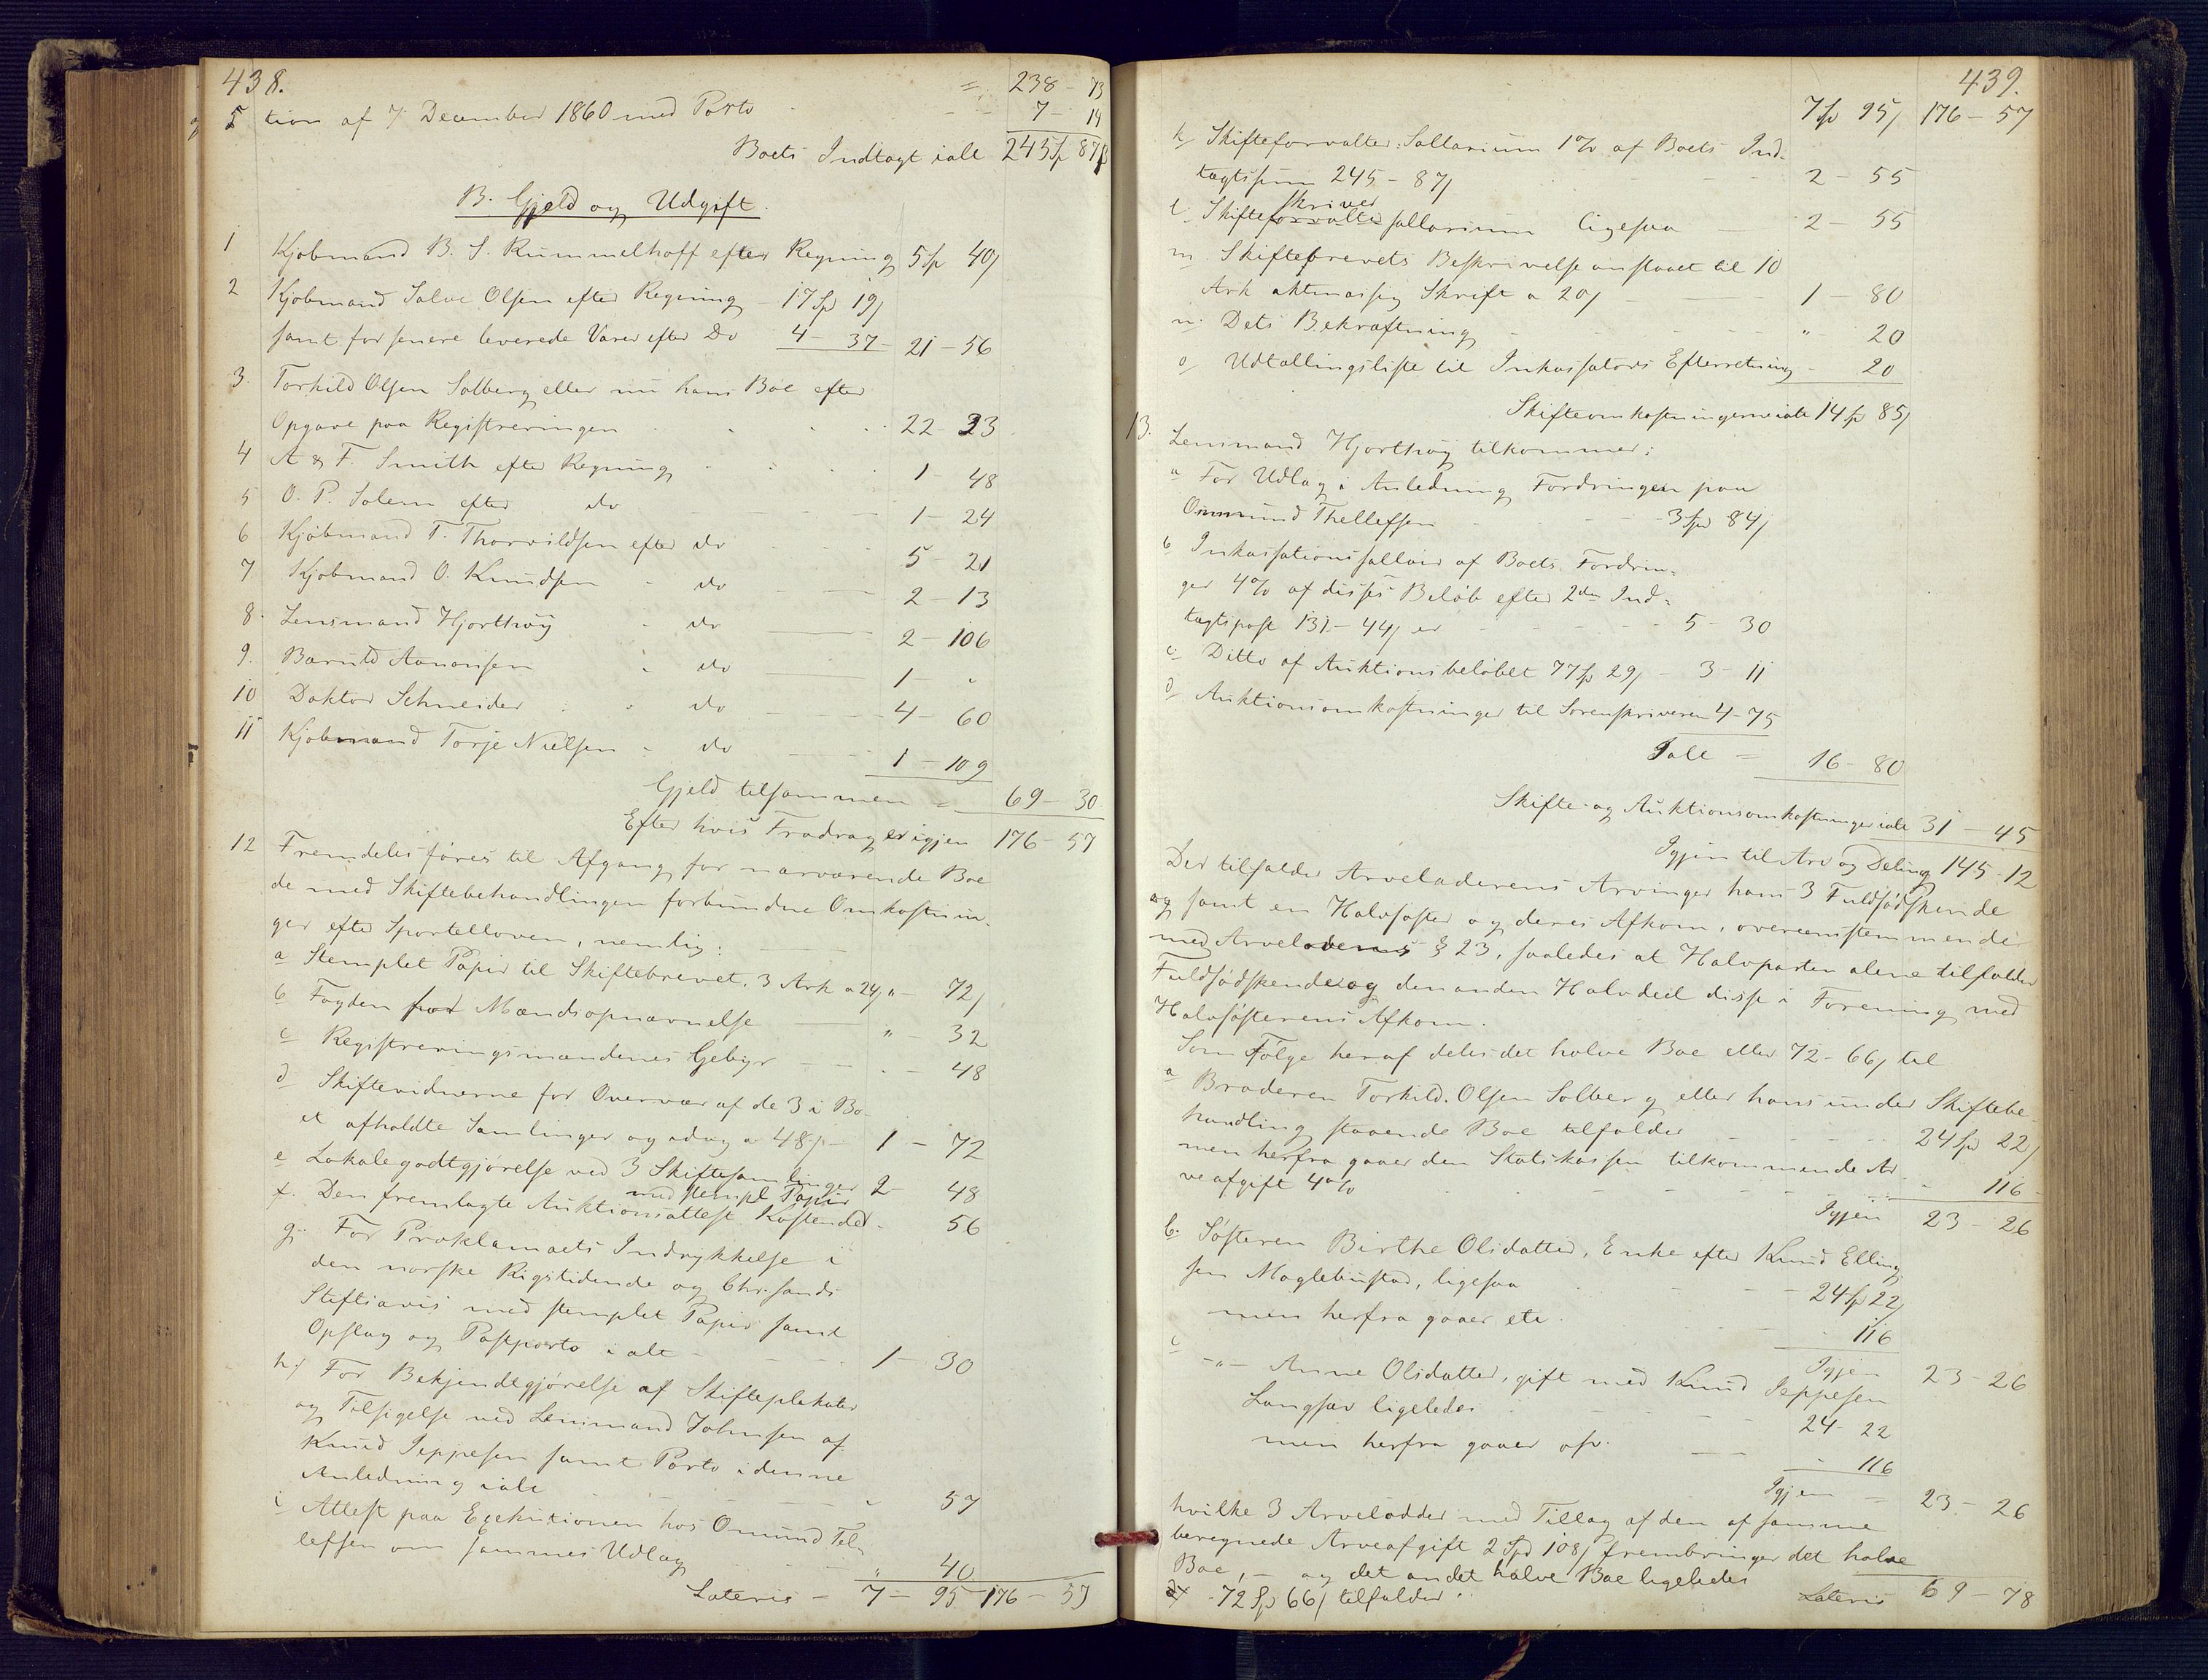 438.
= 238 - 73
5 tion af 7. December 1860 med Porto 7 - 14
Boets Indtægt ialt 245 Sp 87 ß
B. Gjeld og Udgift.
1 Kjøbmand B. S. Rummelhoff efter Regning 5 Sp 40
2 Kjøbmand Salve Olsen efter Regning - 17 Sp 19
samt for senere leverede Varer efter Do 4 - 37 - 21 - 56
3. Torkild Olsen Solberg eller nu hans Boe efter
Opgave paa Registreringen 22 - 33
4 A & F. Smith efter Regning 1 - 48
5 O. P. Solem efter do 1 - 24
6 Kjøbmand T. Thorvildsen efter do 5 - 21
7 Kjøbmand O. Knudsen - do 2 - 13
8. Lensmand Hjorthøy - do 2 - 106
9. Baruld Aanonsen - do 1 - "
10 Doktor Schneider " do 4 - 60
11 Kjøbmand Torje Nielsen - do 1 - 109
Gjeld tilsammen = 69 - 30
Efter hvis Fradrag er igjen 176 - 57
12 Fremdeles føres til Afgang for nærværende Boe
de med Skiftebehandlingen forbundne Omkostnin-
ger efter Sportelloven, nemlig:
a Stemplet Papir til Skiftebrevet, 3 Ark a 24 " - 72
b Fogden for Mændsopnævnelse " - 32
c Registreringsmændenes Gebyr - 48
d Skiftevidnerne for Overvær af de 3 i Bo-
et afholdte Samlinger og idag a 48 1 - 72
e Lokalegodtgjørelse ved 3 Skiftesamlinger 2 - 48
med stempl Papir
f. Den fremlagte Auktionsattest Kostende - 56
g. For Proklamaets Indrykkelse i
den norske Rigstidende og Chr.sands
Stiftsavis med stemplet Papir samt
Opslag og Postporto i alt 1 - 30
h/ For Bekjendtgjørelse af Skifteplakater
og Tilsigelse ved Lensmand Johnsen af
Knud Jeppesen samt Porto i denne
Anledning ialt " 57
i Attest paa Exekutionen hos Omund Tel-
lefsen om sammes Udlag " 40
Lateris - 7 - 95 176 - 57
439.
7 Sp 95 176 - 57
k Skifteforvalter Sallarium 1% af Boets Ind-
tægtssum 245 - 87 2 - 55
skriver
l. Skifteforvalter sallarium ligesaa 2 - 55
m Skiftebrevets Beskrivelse anslaaet til 10
Ark aktmæssig Skrift a 20 1 - 80
n. Dets Bekræftning " 20
o Udtællingsliste til Inkassators Efterretning - 20
Skifteomkostningerne ialt 14 Sp 85
13. Lensmand Hjorthøy tilkommer:
a For Udlæg i Anledning Fordringen paa
Ommund Thellefsen 3 Spd 84
b Inkassationssallair af Boets Fordrin-
ger 4% af disses Beløb efter 2den Ind-
tægtspost 131 - 44 er 5 - 30
c Ditto af Auktionsbeløbet 77 Sp 29 - 3 - 11
d Auktionsomkostninger til Sorenskriveren 4 - 75
Ialt = 16 - 80
Skifte- og Auktionsomkostninger ialt 31 - 45
Igjen til Arv og Deling 145 - 12
Der tilfalder Arveladerens Arvinger hans 3 Fuldsødskende
og samt en Halvsøster og deres Afkom, overeensstemmende
med Arvelovens § 23, saaledes at Halvparten alene tilfalder
Fuldsødskende og den anden Halvdeel disse i Forening med
Halvsøsterens Afkom.
Som Følge heraf deles det halve Boe eller 72 - 66 til
a Broderen Torkild Olsen Solberg eller hans under Skiftebe-
handling staaende Boe tilfalder 24 Spd 22
men herfra gaaer den Statskassen tilkommende Ar-
veafgift 4% 116
Igjen 23 - 26
b. Søsteren Birthe Olsdatter, Enke efter Knud Elling-
sen Moglebustad, ligesaa 24 Sp 22
men herfra gaaer etc. 116
Igjen 23 - 26
c - " - Anne Olsdatter, gift med Knud Jeppesen
Langsæv ligeledes 24 - 22
men herfra gaaer osv. 116
Igjen 23 - 26
hvilke 3 Arvelodder med Tillæg af den af samme
beregnede Arveafgift 2 Spd 108 frembringer det halve
Boe, - og det andet halve Boe ligeledes
72 Sp 66 tilfalder:
Lateris 69 - 78